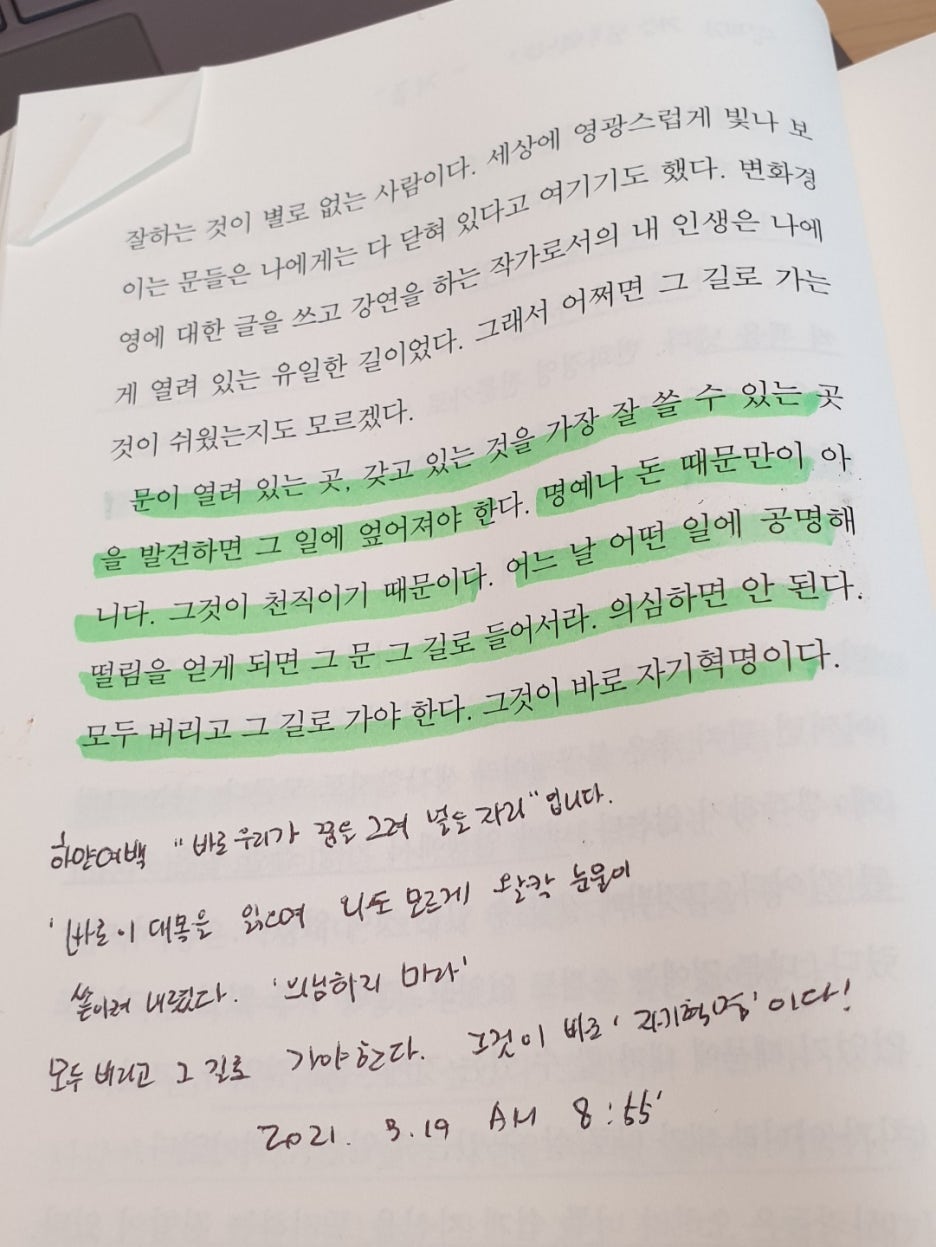 잘하는 것이 별로 없는 사람이다. 세상에 영광스럽게 빛나 보
이는 문들은 나에게는 다 닫혀 있다고 여기기도 했다. 변화경
영에 대한 글을 쓰고 강연을 하는 작가로서의 내 인생은 나에
게 열려 있는 유일한 길이었다. 그래서 어쩌면 그 길로 가는
것이 쉬웠는지도 모르겠다.
문이 열려 있는 곳, 갖고 있는 것을 가장 잘 쓸 수 있는 곳
을 발견하면 그 일에 엎어져야 한다. 명예나 돈 때문만이 아
니다. 그것이 천직이기 때문이다. 어느 날 어떤 일에 공명해
떨림을 얻게 되면 그 문 그 길로 들어서라. 의심하면 안 된다.
모두 버리고 그 길로 가야 한다. 그것이 바로 자기혁명이다.
하얀여백 "바로 우리가 꿈을 그려 넣을 자리" 입니다.
'바로 이 대목을 읽으며 나도 모르게 왈칵 눈물이
쏟아져 내렸다. '의심하지 마라'
모두 버리고 그 길로 가야한다. 그것이 바로 '자기혁명' 이다!
2021. 3.19 AM 8:55'